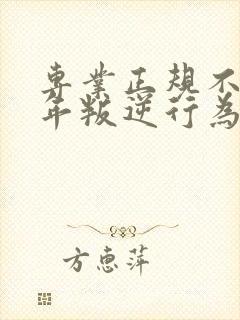 專業正規不
年叛逆行為
方惠萍